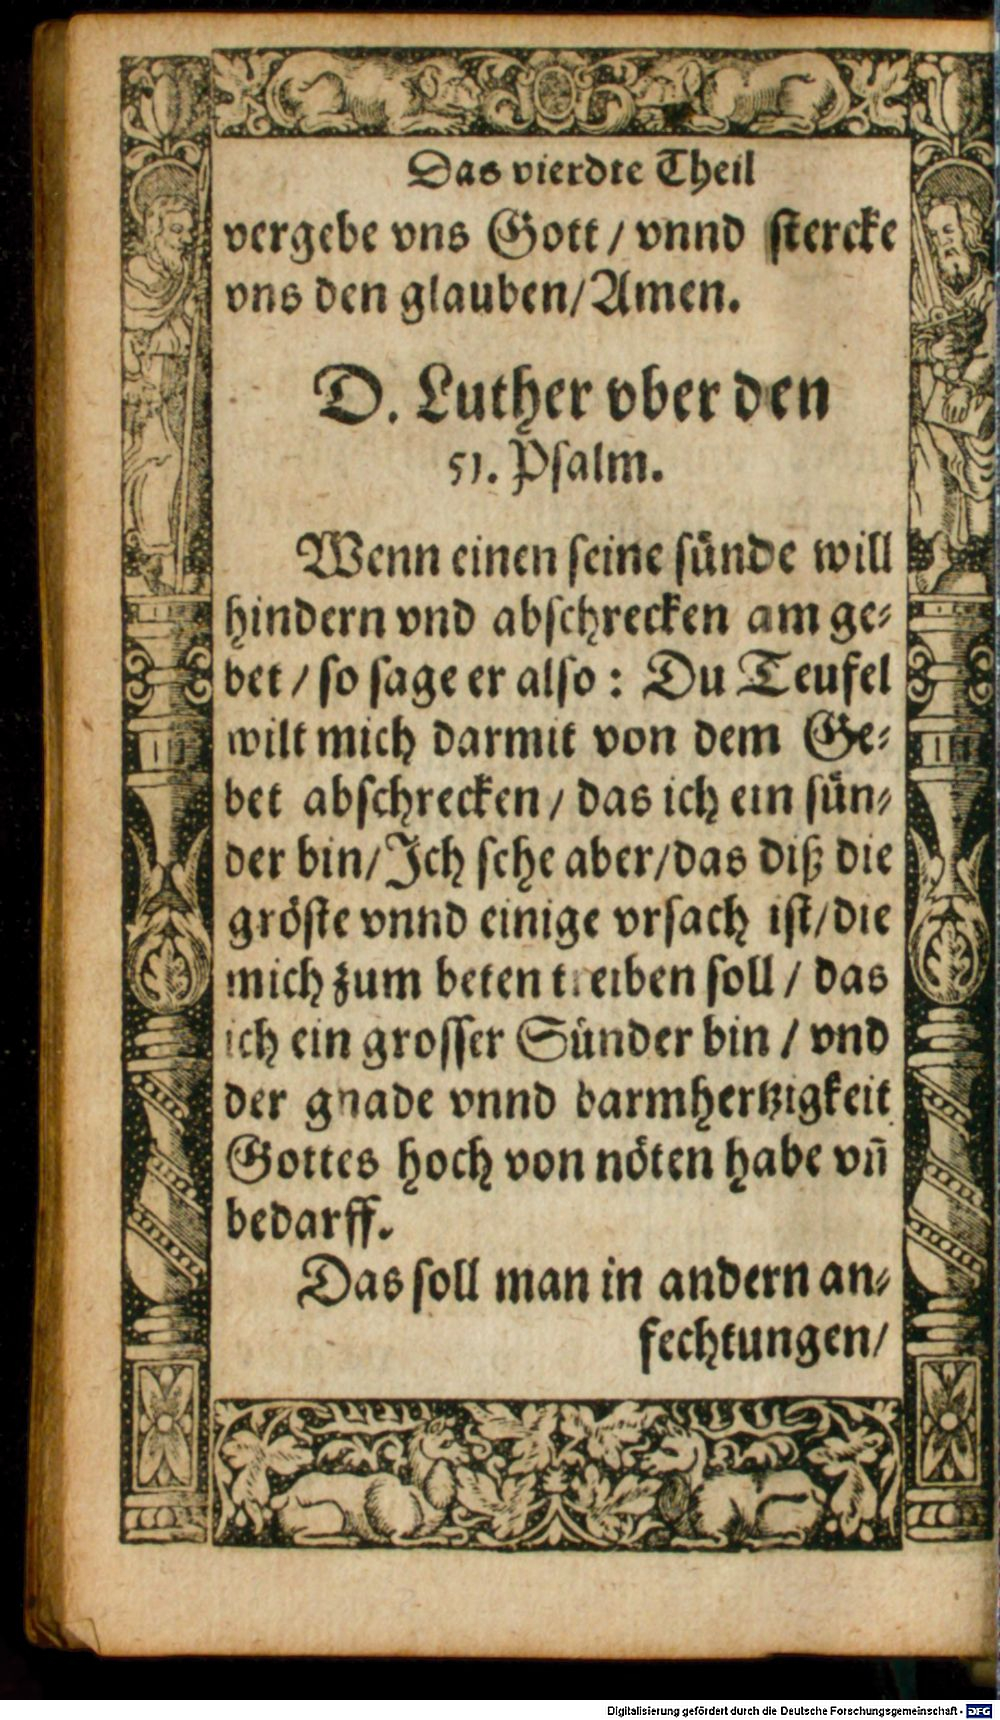 Das vierdte Theil
vergebe vns Gott / vnnd stercke
vns den glauben / Amen.
D. Luther vber den
51. Psalm.
Wenn einen seine sünde will
hindern vnd abschrecken am ge⸗
bet / so sage er also : Du Teufel
wilt mich darmit von dem Ge⸗
bet abschrecken / das ich ein sün⸗
der bin / Ich sehe aber / das diß die
gröste vnnd einige vrsach ist / die
mich zum beten treiben soll / das
ich ein grosser Sünder bin / vnd
der gnade vnnd barmhertzigkeit
Gottes hoch von nöten habe vñ
bedarff.
Das soll man in andern an⸗
fechtungen /
Digitalisierung gefördert durch die Deutsche Forschungsgemeinschaft - DFG